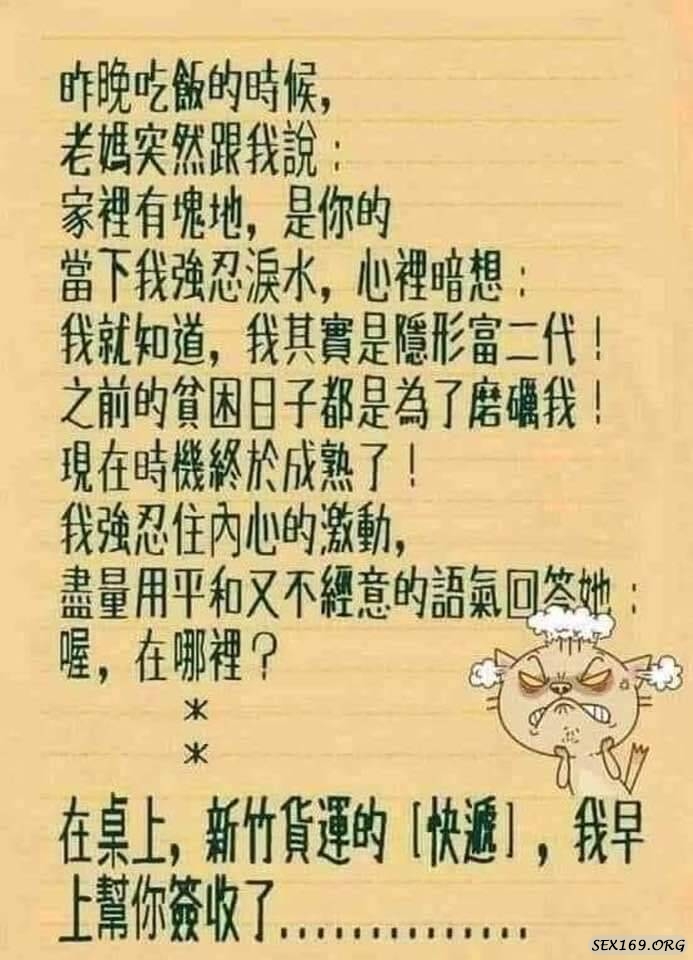 昨晚吃飯的時候，
老媽突然跟我說：
家裡有塊地，是你的
當下我強忍淚水，心裡暗想：
我就知道，我其實是隱形富二代！
之前的貧困日子都是為了磨礪我！
現在時機終於成熟了！
我強忍住內心的激動，
盡量用平和又不經意的語氣回答她：
喔，在哪裡？
*
*
在桌上，新竹貨運的［快遞］，我早
上幫你簽收了...............
SEX169.ORG